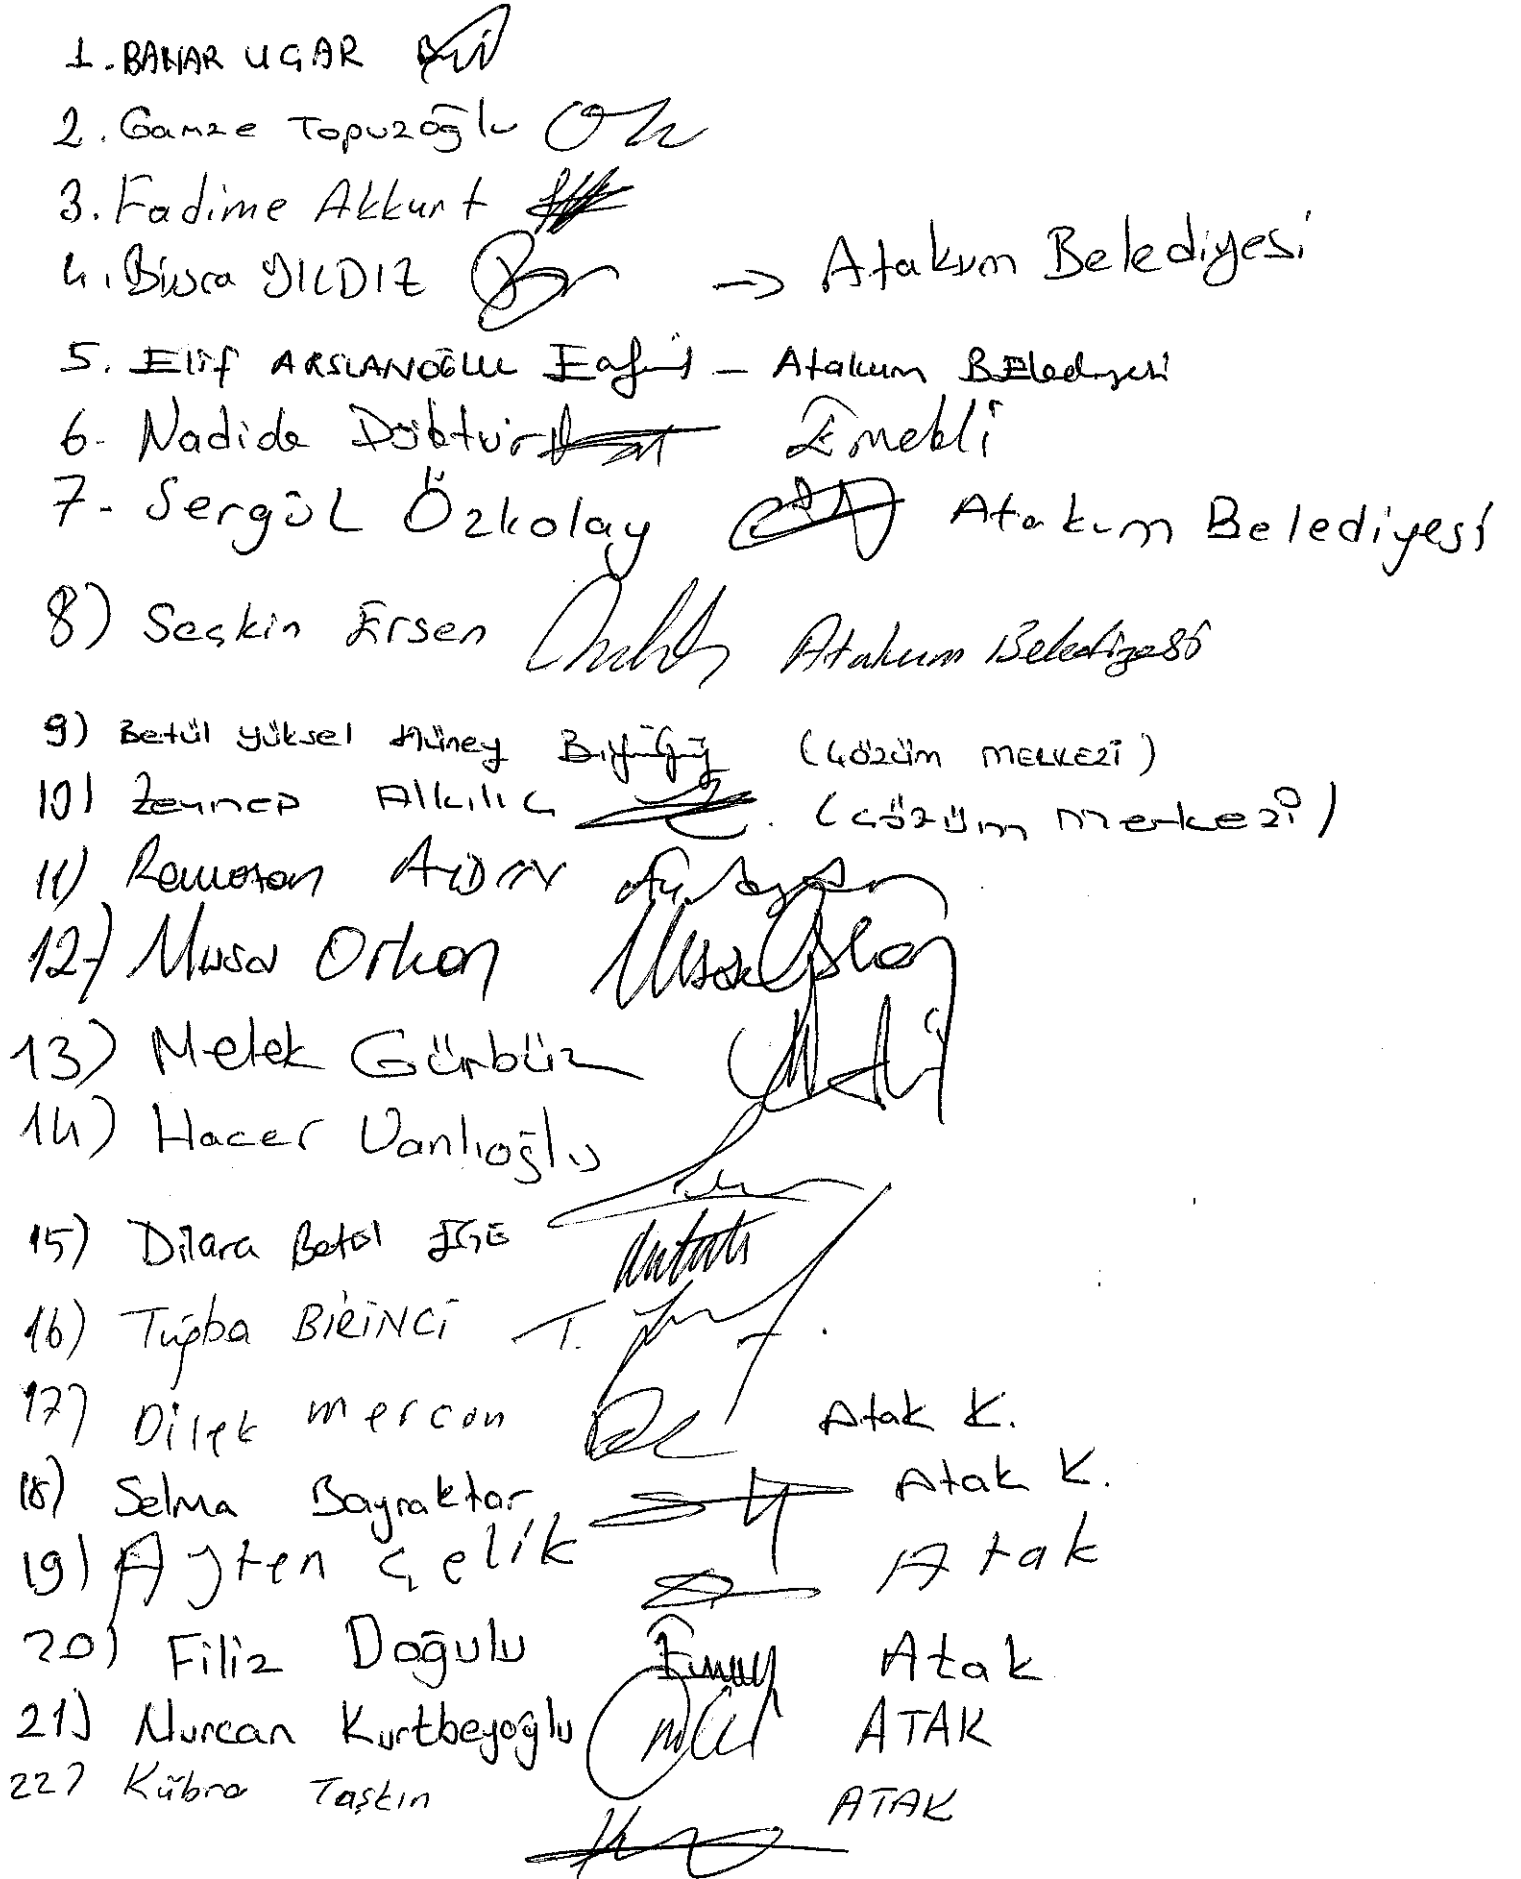 1. BAHAR UGAR
2. Gamze Topuzoğlu
3. Fadime Akkurt
4. Büşra YILDIZ → Atakum Belediyesi
5. Elif ARSLANOĞLU - Atakum Belediyesi
6- Nadide Emekli
7- Sergül Özkolay Atakum Belediyesi
8) Seçkin Ersen Atakum Belediyesi
9) Betül Yüksel (ÇÖZÜM MERKEZİ)
10) Zeynep Alkılıç (Çözüm Merkezi)
11) Ramazan AYDIN
12-) Musa Orhan
13) Melek Gürbüz
14) Hacer Vanlıoğlu
15) Dilara Betül EGE
16) Tuğba BİRİNCİ T.
17) Dilek Mercan Atak K.
18) Selma Bayraktar Atak K.
19) Ayten Çelik Atak
20) Filiz Doğulu Atak
21) Nurcan Kurtbeyoğlu ATAK
22) Kübra Taşkın ATAK